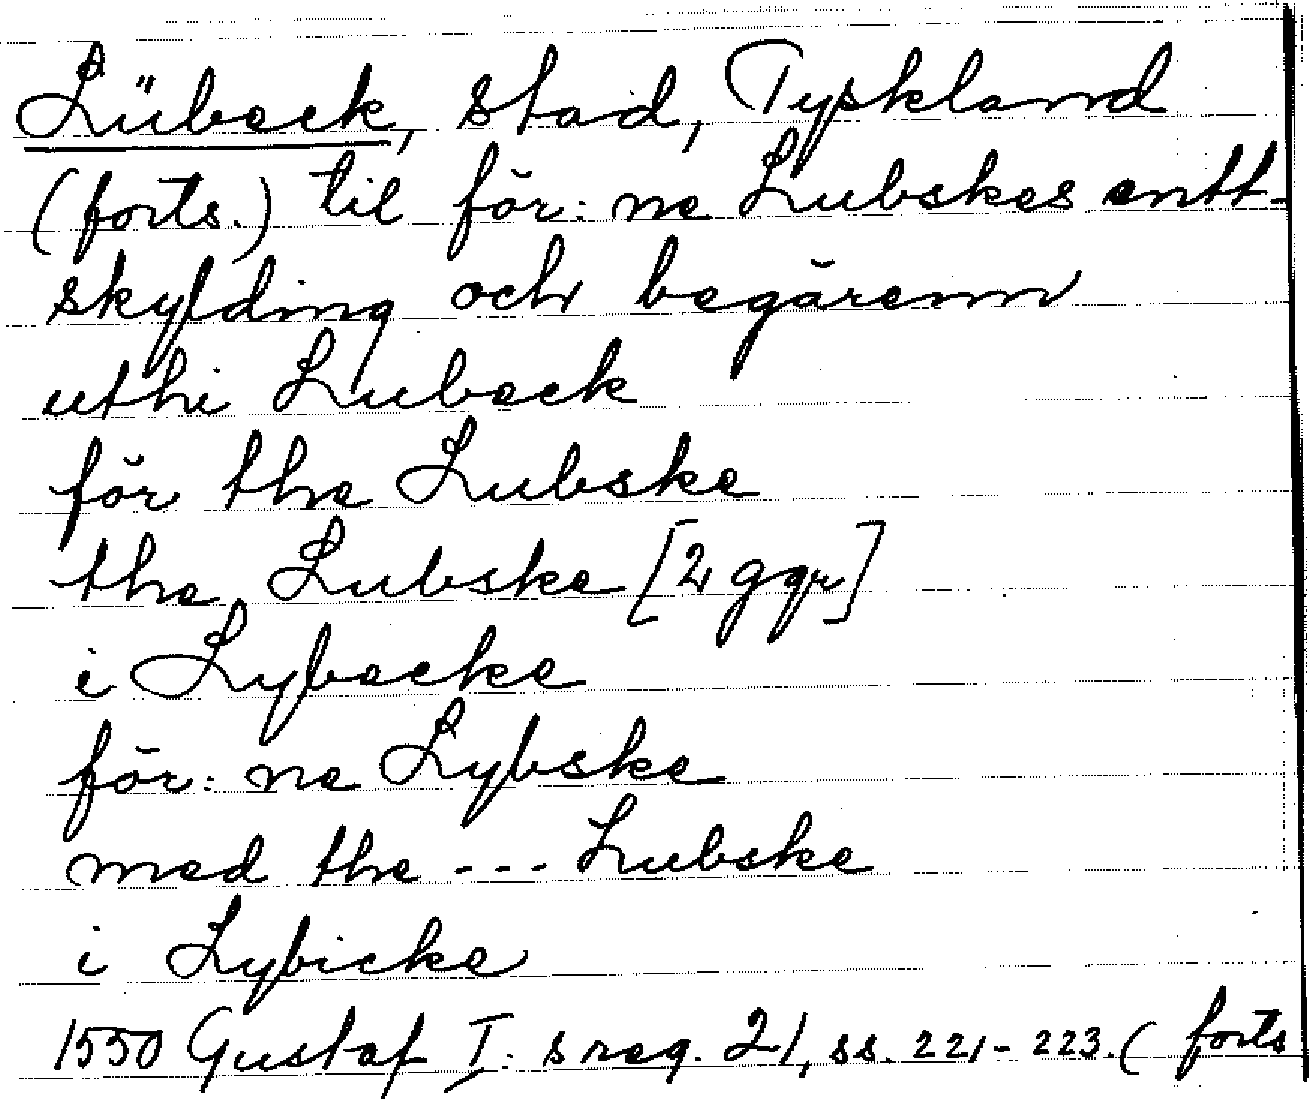 Lübeck, stad, Tyskland
(forts.) til för: ne Lubskes entt-
skylding och begärenn
uthi Lubeck
för the Lubske
the Lubske [2 ggr]
i Lybecke
för: ne Lybske
med the --- Lubske
i Lybicke
1550 Gustaf I: s reg. 21, ss. 221-223. ( forts